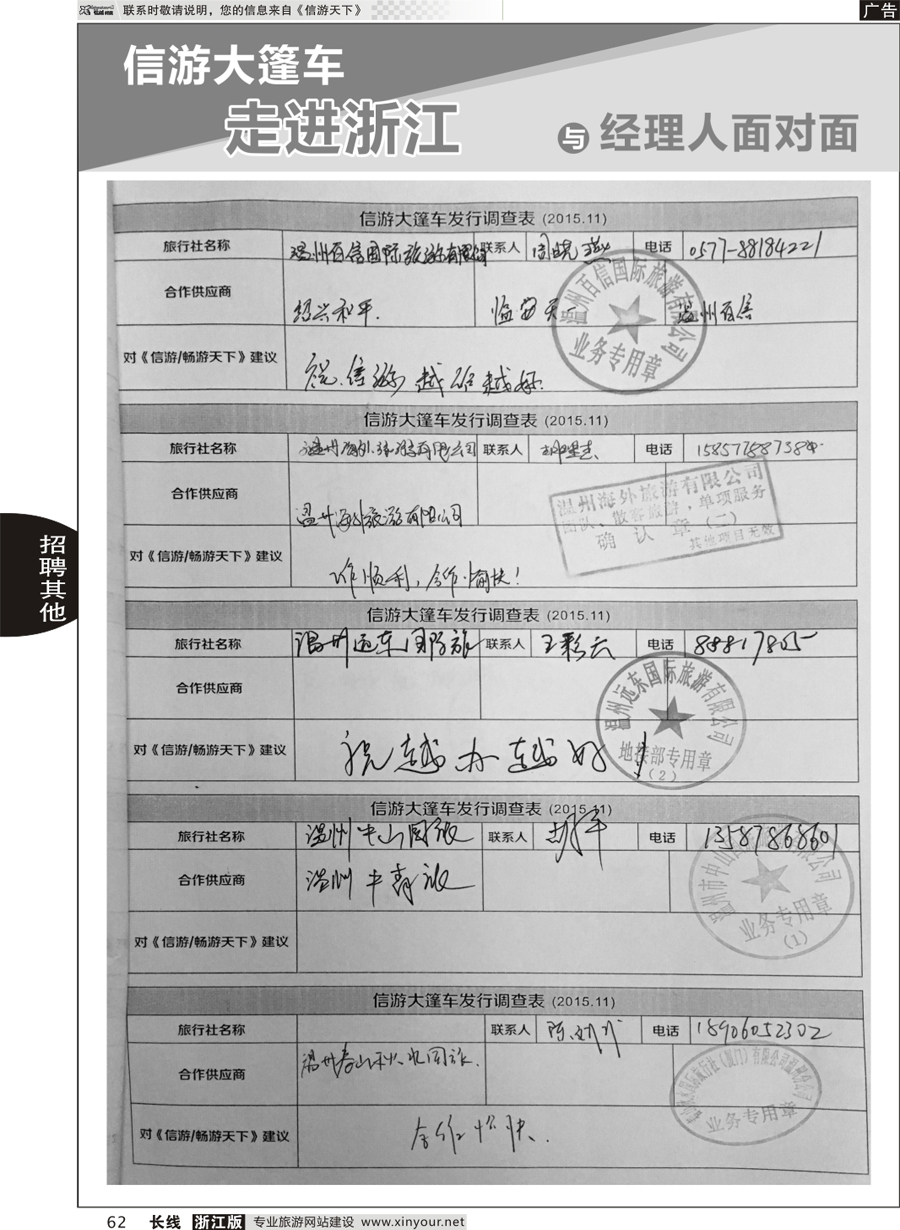 联系时敬请说明，您的信息来自《信游天下》
广告
信游大篷车
走进浙江
与经理人面对面
招聘其他
信游大篷车发行调查表 (2015.11)
旅行社名称 温州百信国际旅游有限公司 联系人 周晓燕 电话 0577-88184221
合作供应商 绍兴和平. 临安天 温州百信
温州百信国际旅游有限公司
业务专用章
对《信游/畅游天下》建议 祝信游越办越好.
信游大篷车发行调查表 (2015.11)
旅行社名称 温州海外旅游有限公司 联系人 电话 15857788738
合作供应商 温州海外旅游有限公司
温州海外旅游有限公司
团队、散客旅游，单项服务
确认章 (二)
其他项目无效
对《信游/畅游天下》建议 工作顺利，合作愉快！
信游大篷车发行调查表 (2015.11)
旅行社名称 温州远东国际旅 联系人 王彩云 电话 88817805
合作供应商
温州远东国际旅游有限公司
地接部专用章
(2)
对《信游/畅游天下》建议 祝越办越好！
信游大篷车发行调查表 (2015.11)
旅行社名称 温州中山国旅 联系人 胡萍 电话 13587868601
合作供应商 温州中青旅
温州市中山
有限公司
业务专用章
(1)
对《信游/畅游天下》建议
信游大篷车发行调查表 (2015.11)
旅行社名称 联系人 陈 电话 18906052302
合作供应商 温州春山秋水国旅.
业务专用章
对《信游/畅游天下》建议 合作愉快.
62 长线 浙江版 专业旅游网站建设 www.xinyour.net